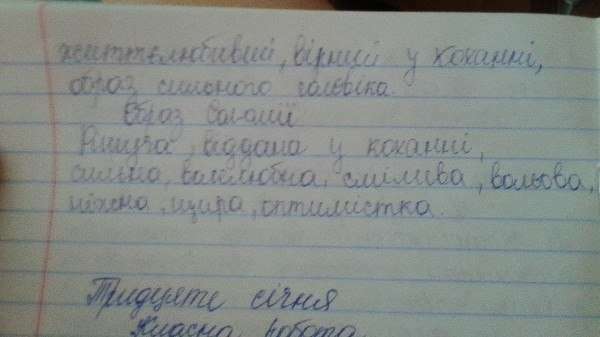 життєлюбивий, вірний у коханні,
образ сильного чоловіка.
Образ
Рішуча, віддана у коханні,
сильна, волелюбна, смілива, вольова,
ніжна, щира, оптимістка.
Тридцяте січня
Класна робота